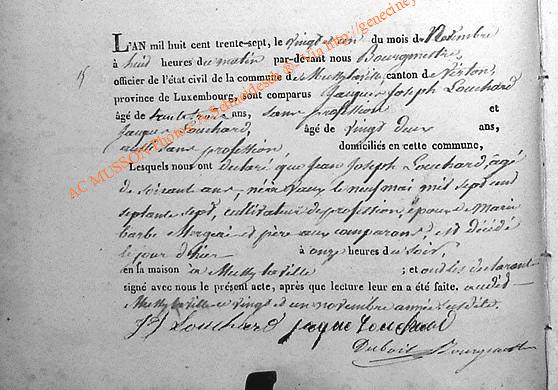 15
L'AN mil huit cent trente-sept, le vingt et un du mois de Novembre
à huit heures du matin par-devant nous Bourgmestre
officier de l'état civil de la commune de Mussy la ville, canton de Virton,
province de Luxembourg, sont comparus Jacques Joseph Louchard
âgé de trente trois ans, sans profession et
Jacques Louchard, âgé de vingt deux ans,
aussi sans profession domiciliés en cette commune,
Lesquels nous ont declaré que Jean Joseph Louchard, agé
de soixant ans, né à Vaux le neuf mai mil sept cent
septante sept, cultivateur de profession, époux de Marie
barbe et père aux comparans, est décédé
le jour d'hier à onze heures du soir,
en la maison à Mussy la ville ; et ont les declarant
signé avec nous le présent acte, après que lecture leur en a été faite. audit
Mussy la ville ce vingt et un novembre année susdite.
JJ Louchard Jaque Louchard
Dubois Bourgmest
AC MUSSON Photos
http://geneciney